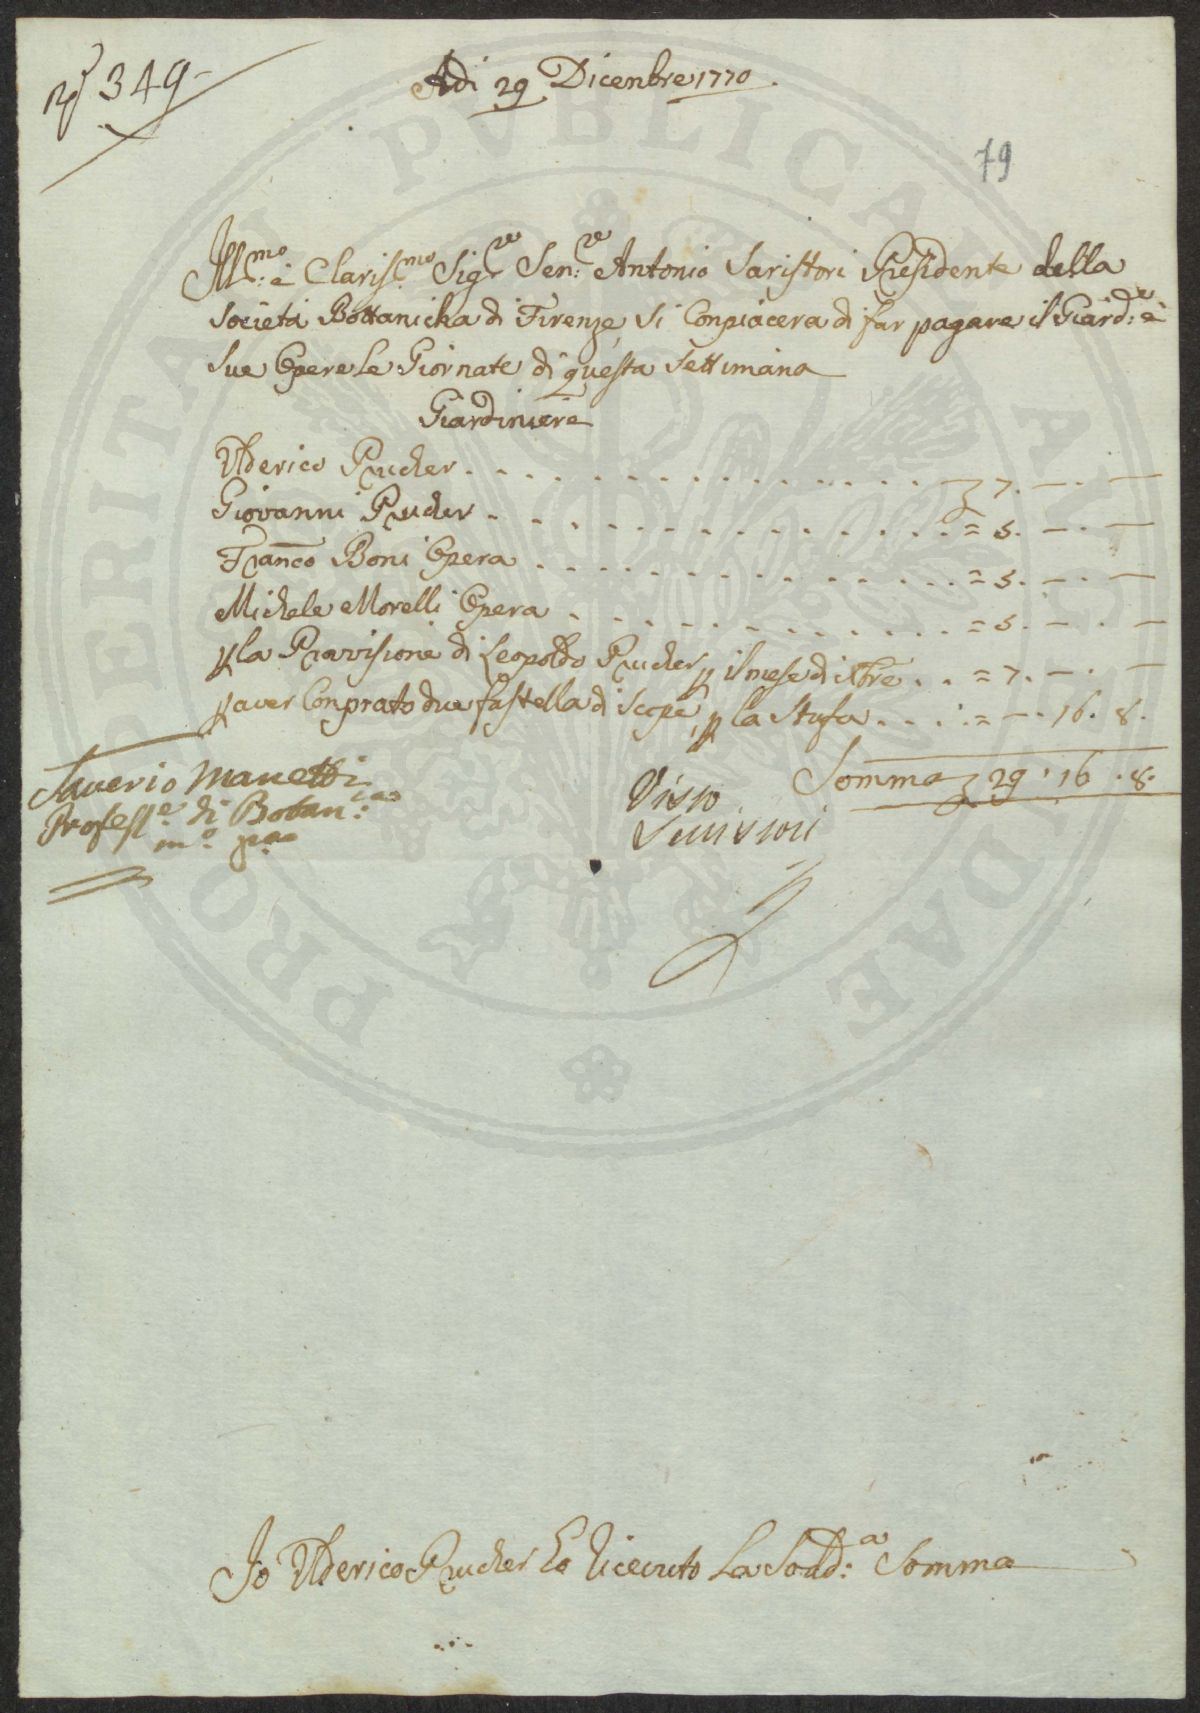 N° 349
Adi 29 Dicenbre 1770.
79
Ill:mo è Claris:mo Sigre Sen:re Antonio Saristori Presidente della
Società Bottanicha di Firenze, Si Conpiacera di far pagare il Giard:e è
Sue Opere Le Giornate di questa Settimana
Giardiniere
Uderico Prucher . . . . . . . . . . . . . . . . 7. — . —
Giovanni Prucher . . . . . . . . . . . . . . . . = 5. — . —
Franco Boni Opera . . . . . . . . . . . . . . . = 5. — . —
Michele Morelli Opera . . . . . . . . . . . . . . = 5. — . —
p la Provisione di Leopoldo Prucher p il mese di Xbre . . = 7. — . —
p aver Conprato due fastella di Scope, p la Stufa . . . . = — . 16. 8.
Somma 29 . 16 . 8.
Saverio Manetti
Profess:e di Botan:ica
mo ppa
Visto
Serristori
Io Uderico Prucher Ho Riceuto La Sud:a Somma
PRO PERITATI PVBLICAE AVGENDAE